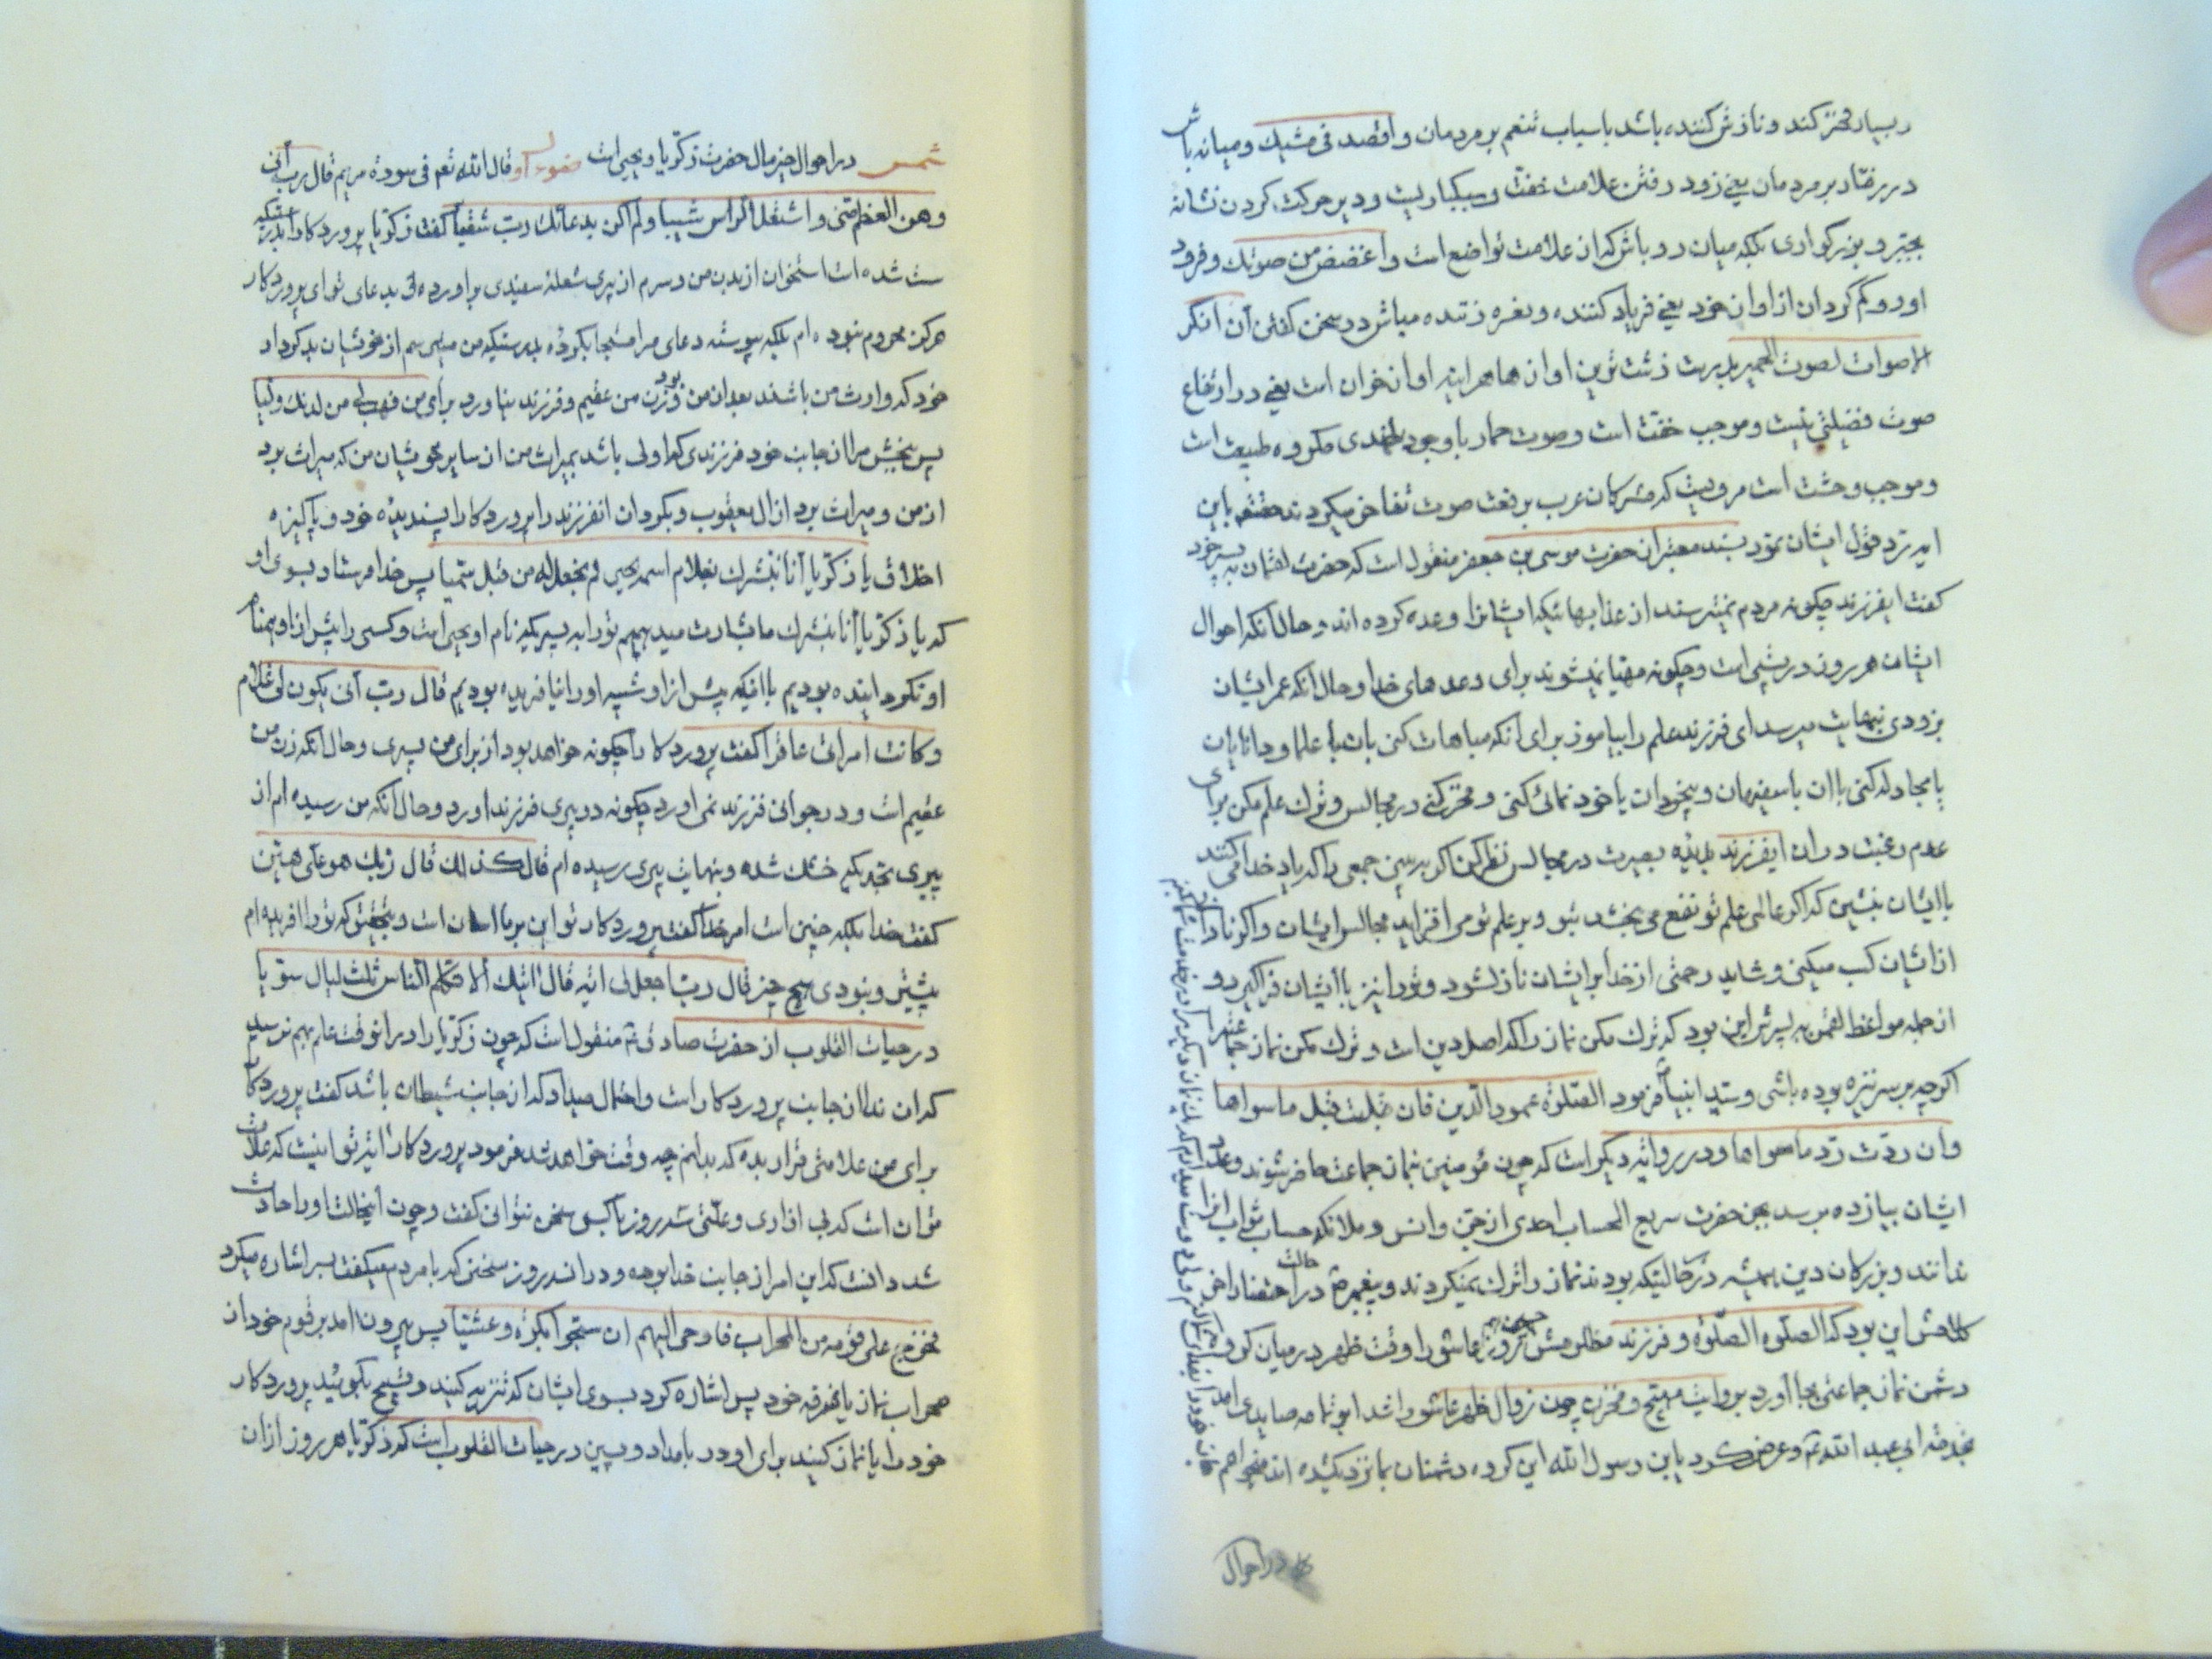 بسیار فخر کند و نازش کننده باشد باسباب تنعم بر مردمان واقصد فی مشیک و میانه باش
در رفتار بر مردمان یعنی زود رفتن علامت خفت و سبکباریست و دیر حرکت کردن نشانه
تجبر و بزرکواری بلکه میان رو باش که ان علامت تواضع است واغضض من صوتک و فرود
اور و کم کردان از اواز خود یعنی فریاد کننده و نعره زننده مباش در سخن کفتن ان انکر
الاصوات لصوت الحمیر بدرستی زشت ترین اوازها هر اینه اواز خران است یعنی در ارتفاع
صوت فضیلتی نیست و موجب خفت است و صوت حمار با وجود بلندی مکروه طبیعت است
و موجب وحشت است مرویست که مشرکان عرب برفعت صوت تفاخر میکردند حقتعم باین
ایه رد قول ایشان نمود بسند معتبر از حضرت موسی بن جعفر منقول است که حضرت لقمان به پسر خود
کفت ایفرزند چکونه مردم نمیترسند از عذابهائیکه ایشانرا وعده کرده اند و حال آنکه احوال
ایشان هر روز در پستی است و چکونه مهیا نمیشوند برای وعدهای خدا و حال آنکه عمر ایشان
بزودی بنهایت میرسد ای فرزند علم را بیاموز برای انکه مباهات کنی باان با علما و دانایان
یا مجادله کنی باان با سفیهان و بیخردان یا خود نمائی کنی و فخر کنی در مجالس و ترک علم مکن برای
عدم رغبت در ان ایفرزند بدیده بصیرت در مجالس نظر کن اکر به بینی جمعی را که یاد خدا می کنند
با ایشان بنشین که اکر عالمی علم تو نفع می بخشد بتو و بر علم تو می افزاید مجالس ایشان و اکر نادانی
از ایشان کسب میکنی و شاید رحمتی از خدا بر ایشان نازل شود و تو را نیز با ایشان فراکیرد و
از جمله مواعظ لقمن به پسرش این بود که ترک مکن نماز را که اصل دین است و ترک مکن نماز جماعترا
اکرچه بر سر نیزه بوده باشی و سید انبیا فرمود الصلوة عمود الدین فان قبلت قبل ما سواها
وان ردت رد ما سواها و در روایه دیکر است که چون مؤمنین بنماز جماعت حاضر شوند و عدد
ایشان بیازده برسد بجز حضرت سریع الحساب احدی از جن و انس و ملائکه حساب ثواب انرا
ندانند و بزرکان دین همیشه در هر حالتیکه بودند نماز را ترک نمیکردند و پیغمبر در حالت احتضار اخر
کلامش این بود که الصلوة الصلوة و فرزند مظلومش حسین در روز عاشورا وقت ظهر در میان کروه
دشمن نماز جماعتی بجا آورد بروایت مهیج و مخزن چون زوال ظهر عاشورا شد ابو ثمامه صایدی امد
بخدمة ابی عبد الله و عرض کرد یابن رسول الله این کروه دشمنان بما نزدیک شده اند میخواهم
در احوال
شمس در احوال خیر مال حضرت زکریا و یحیی است ضوء اول قال الله تعم فی سورة مریم قال رب انی
وهن العظم منی و اشتعل الراس شیبا و لم اکن بدعائک رب شقیا کفت زکریا پروردکارا بدرستیکه
سست شده است استخوان از بدن من و سرم از پیری شعله سفیدی براورده و بدعای تو ای پروردکار
هرکز محروم نبوده ام بلکه پیوسته دعای مرا مستجاب کردهٔ بدرستیکه من میترسم از خویشان بد کردار
خود که وارث من باشند بعد از من و بود زن من عقیم و فرزند نیاورد برای من فهب لی من لدنک ولیا
پس ببخش مرا از جانب خود فرزندی که اولی باشد بمیراث من از سایر خویشان من که میراث برد
از من و میراث برد از ال یعقوب و بکردان انفرزند را پروردکارا پسندیده خود و پاکیزه
اخلاق یا زکریا انا نبشرک بغلام اسمه یحیی لم نجعل له من قبل سمیا پس خدا فرستاد بسوی او
که یا زکریا انا نبشرک ما بشارت میدهیم تو را به پسریکه نام او یحیی است و کسی را پیش از او همنام
او نکردانیده بودیم یا انکه پیش از او شبیه او را نیافریده بودیم قال رب انی یکون لی غلام
و کانت امراتی عاقرا کفت پروردکارا چکونه خواهد بود از برای من پسری و حال انکه زن من
عقیم است و در جوانی فرزند نمی اورد چکونه در پیری فرزند اورد و حال انکه من رسیده ام از
پیری بحدیکه خشک شده و بنهایت پیری رسیده ام قال کذلک قال ربک هو علی هین
کفت خدا بلکه چنین است امر خدا کفت پروردکار تو این بر ما اسان است و بتحقیق که تو را افریده ام
پیشتر و نبودی هیچ چیز قال رب اجعل لی ایة قال ایتک الا تکلم الناس ثلث لیال سویا
در حیات القلوب از حضرت صادق منقول است که چون زکریا را در انوقت علم بهم نرسید
که ان ندا از جانب پروردکار است و احتمال میداد که از جانب شیطان باشد کفت پروردکارا
برای من علامتی قرار بده که بدانم چه وقت خواهد شد فرمود پروردکار ایه تو اینست که علامت
تو ان است که بی ازاری و علتی سه روز با کسی سخن نتوانی کفت و چون اینحالت او را حادث
شد دانست که این امر از جانب خدا بوده و در انسه روز سخنی که با مردم میکفت بسر اشاره میکرد
فخرج علی قومه من المحراب فاوحی الیهم ان سبحوا بکرة و عشیا پس بیرون امد بر قوم خود از
محراب نماز یا غرفه خود پس اشاره کرد بسوی ایشان که تنزیه کنید و تسبیح بکوئید پروردکار
خود را یا نماز کنید برای او در بامداد و پسین در حیات القلوب است که زکریا هر روز از ان